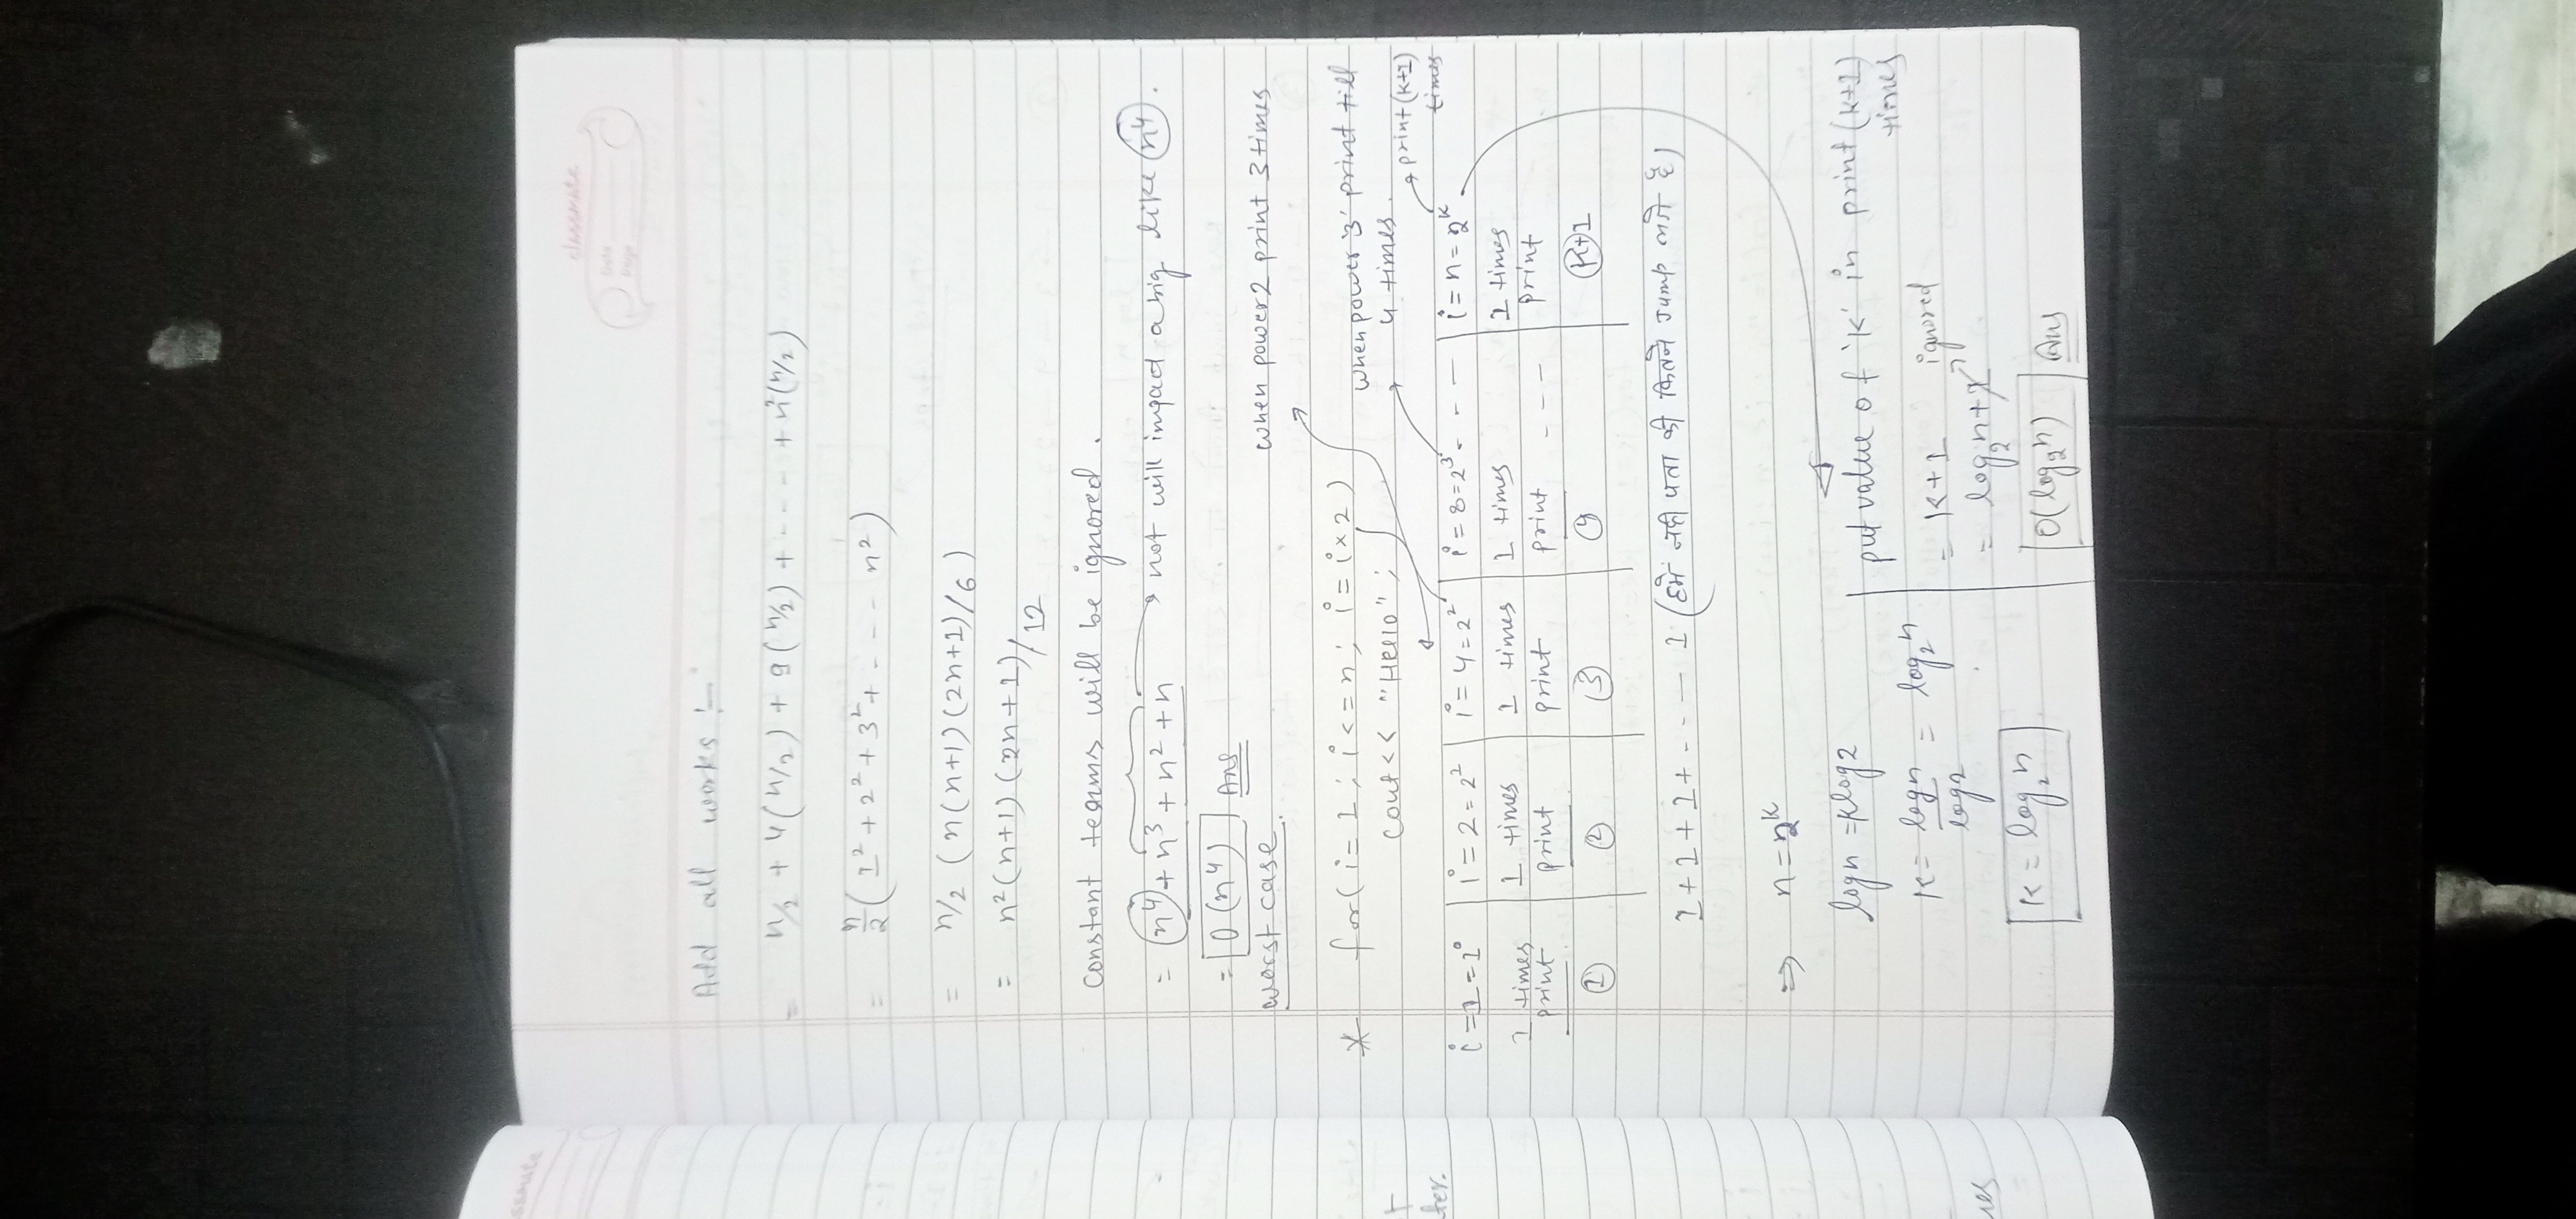 ssmate
classmate
Date
Page
Add all works :-
= n/2 + 4(n/2) + 9(n/2) + ---- + n²(n/2)
= n/2 (1² + 2² + 3² + ---- n²)
= n/2 (n(n+1)(2n+1)/6)
= n²(n+1)(2n+1)/12
constant terms will be ignored.
= n⁴ + n³ + n² + n → not will impad a big like n⁴.
= O(n⁴) Ans
worst case.
when power 2 print 3 times
* for(i=1; i<=n; i=i×2)
cout<< "Hello";
when power '3' print till
4 times.
print(k+1)
times
ter.
i=1=1⁰ | i=2=2² | i=4=2² | i=8=2³ - - - | i=n=2ᵏ
1 times | 1 times | 1 times | 1 times | 1 times
print | print | print | print - - - | print
1 | 2 | 3 | 4 | K+1
1+1+1+---- 1 (हमें नही पता की कितने Jump लगे है)
⇒ n=2ᵏ
logn=Klog2
K= logn/log2 = log₂n
K= log₂n
put value of 'K' in print(k+1)
times
= K+1 ignored
= log₂n+1
O(log₂n) Ans